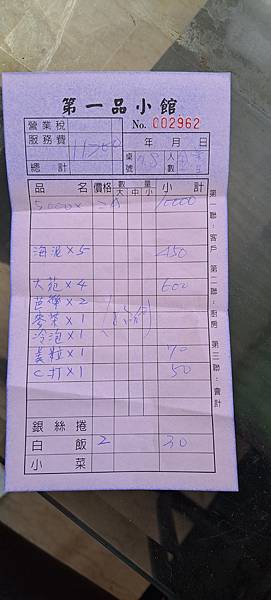 第一品小館
營業稅
No. 002962
服務費
總計
11200
年 月 日
桌號
人數
品名 價格 數量 大 中 小 小計
5000× 10000
海泥×5 450
大苑×4 600
×2
麥茶×1
冷泡×1
美粒×1 70
C打×1 50
銀絲捲
白飯 2 30
小菜
第一聯：客戶 第二聯：廚房 第三聯：會計